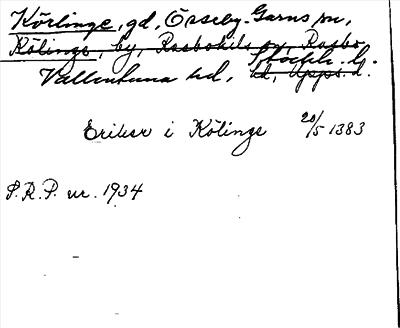 Körlinge, gd, Össeby-Garns sn,
Kölinge, by, Rasbokils sn, Rasbo
Stockh. l.
Vallentuna hd, hd, Upps. l.
Eriker i Kölinge 20/5 1383
S.R.P. nr. 1934